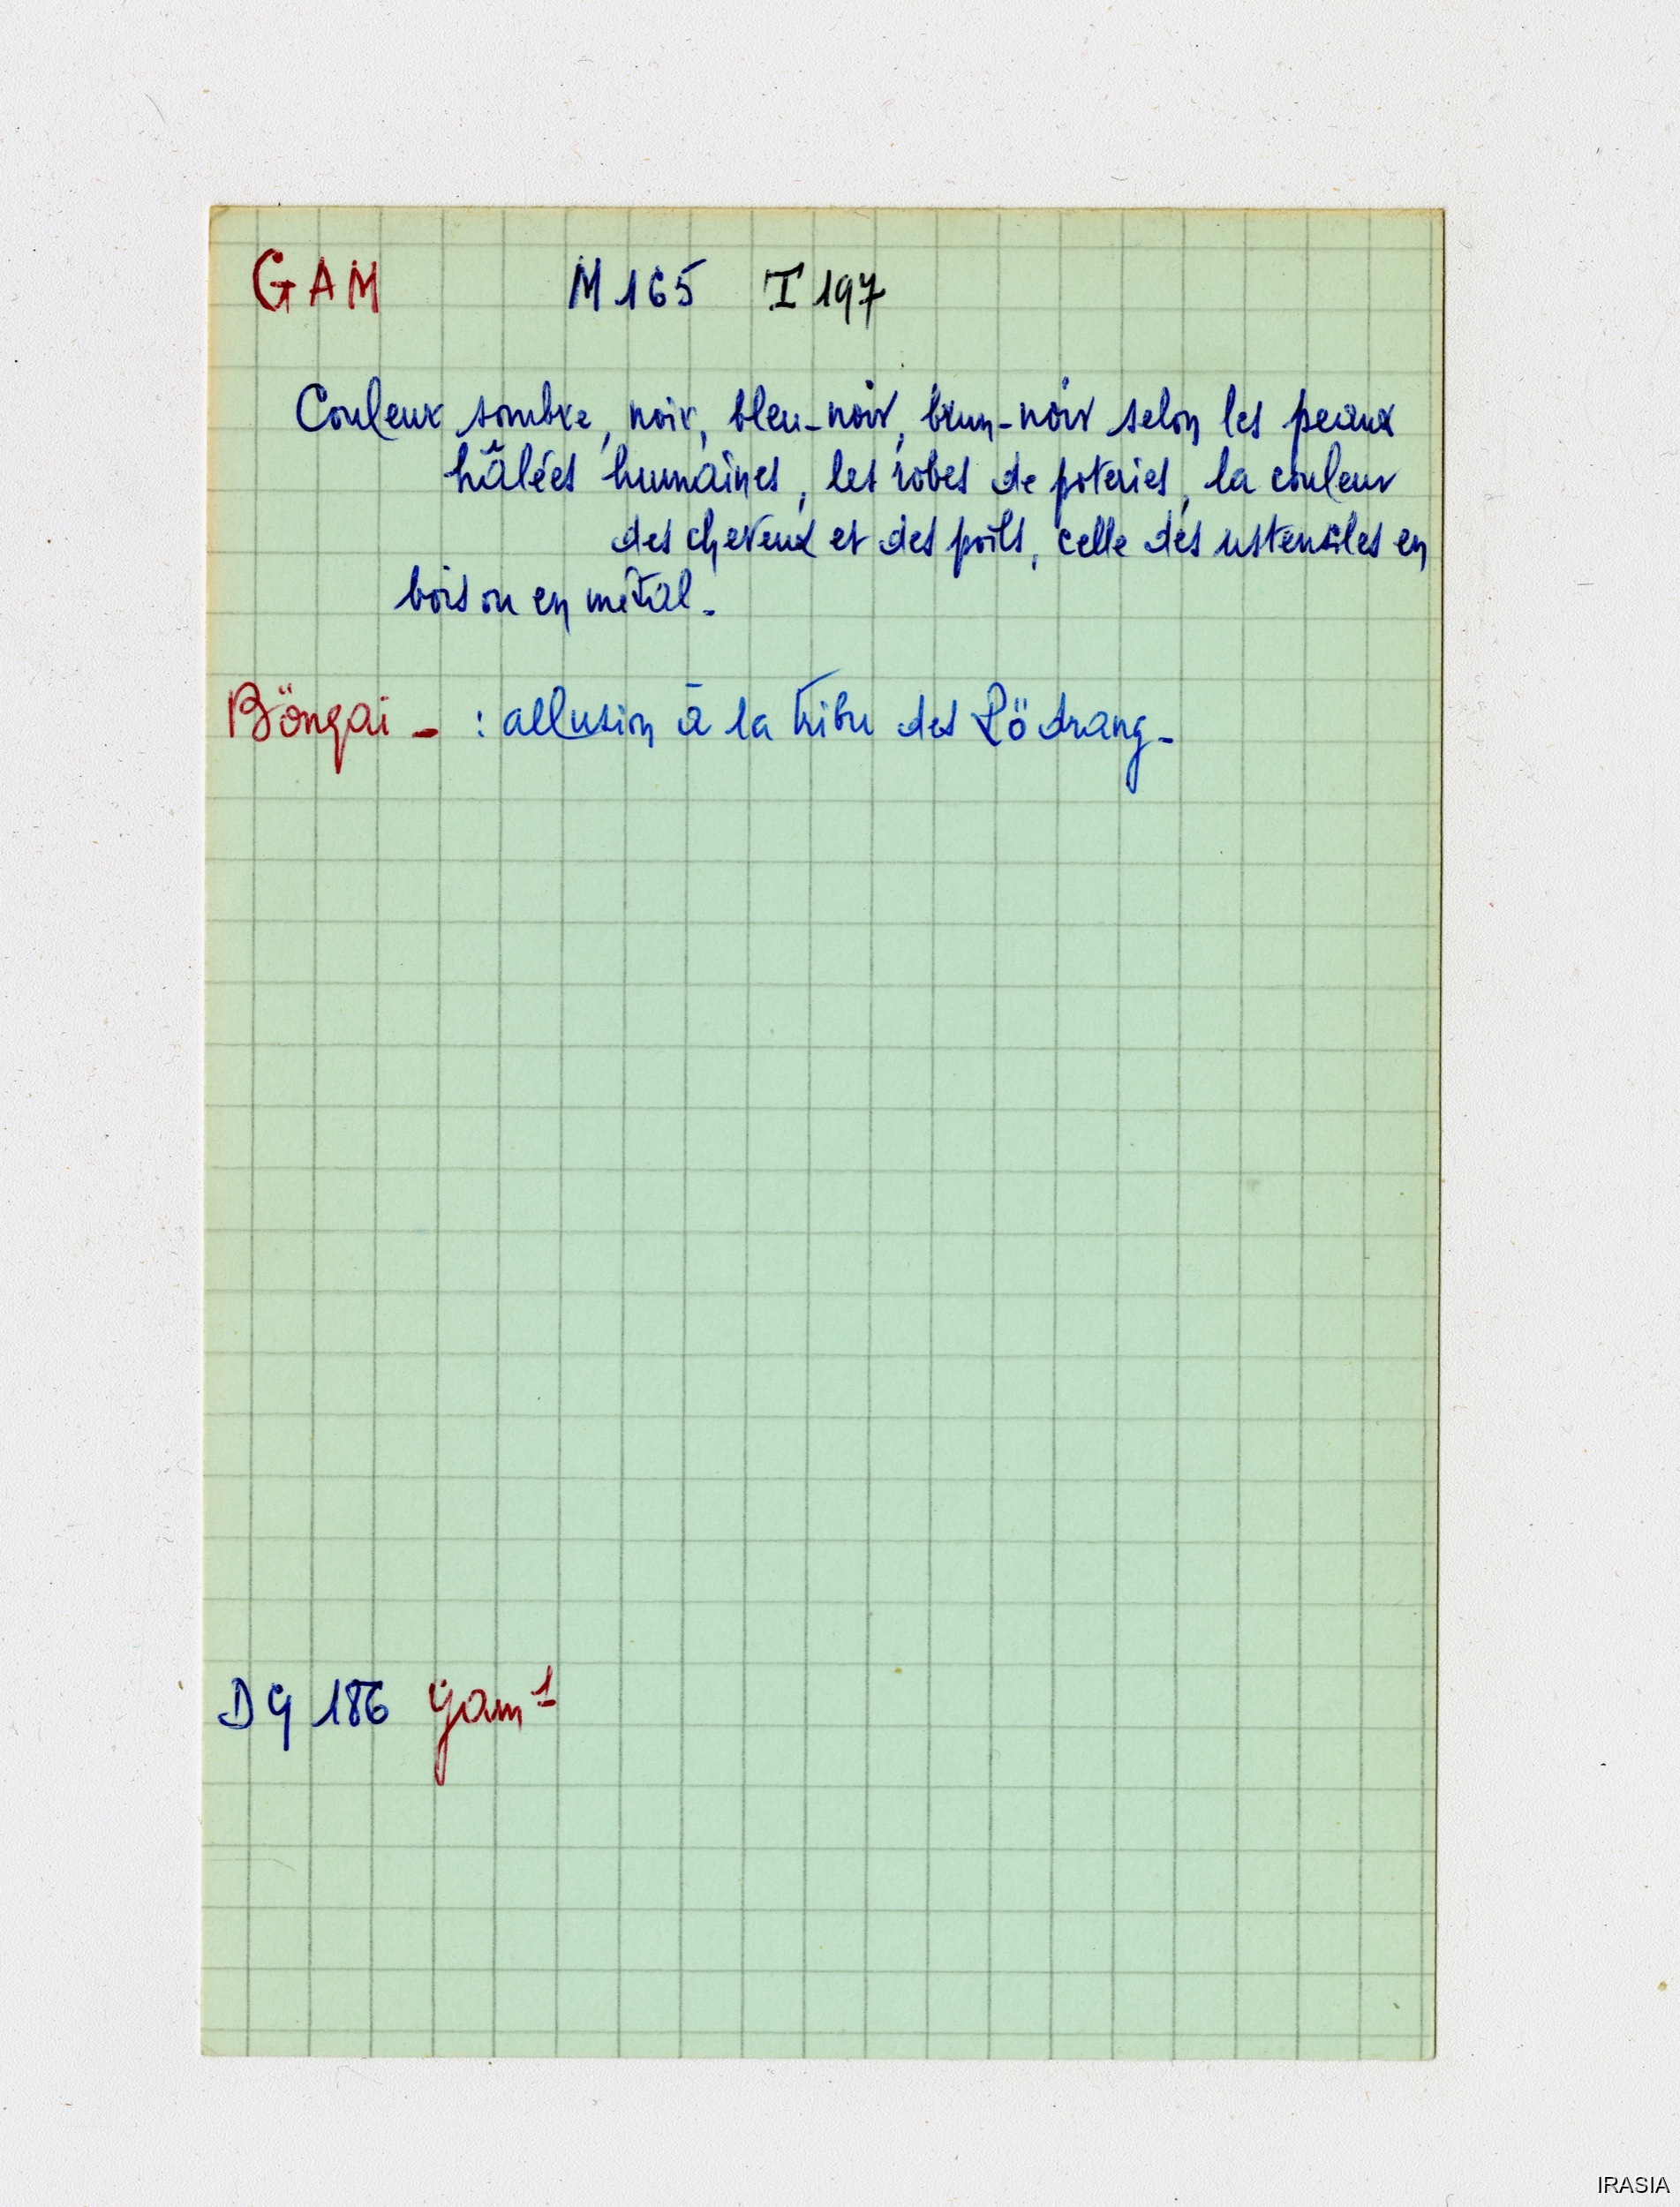 GAM M 165 I 197
Couleur sombre, noir, bleu-noir, brun-noir selon les peaux
hâlées humaines, les robes de poteries, la couleur
des cheveux et des poils, celle des ustensiles en
bois ou en métal.
Böngai - : allusion à la tribu des Lödrang-
DG 186 Gam¹
IRASIA